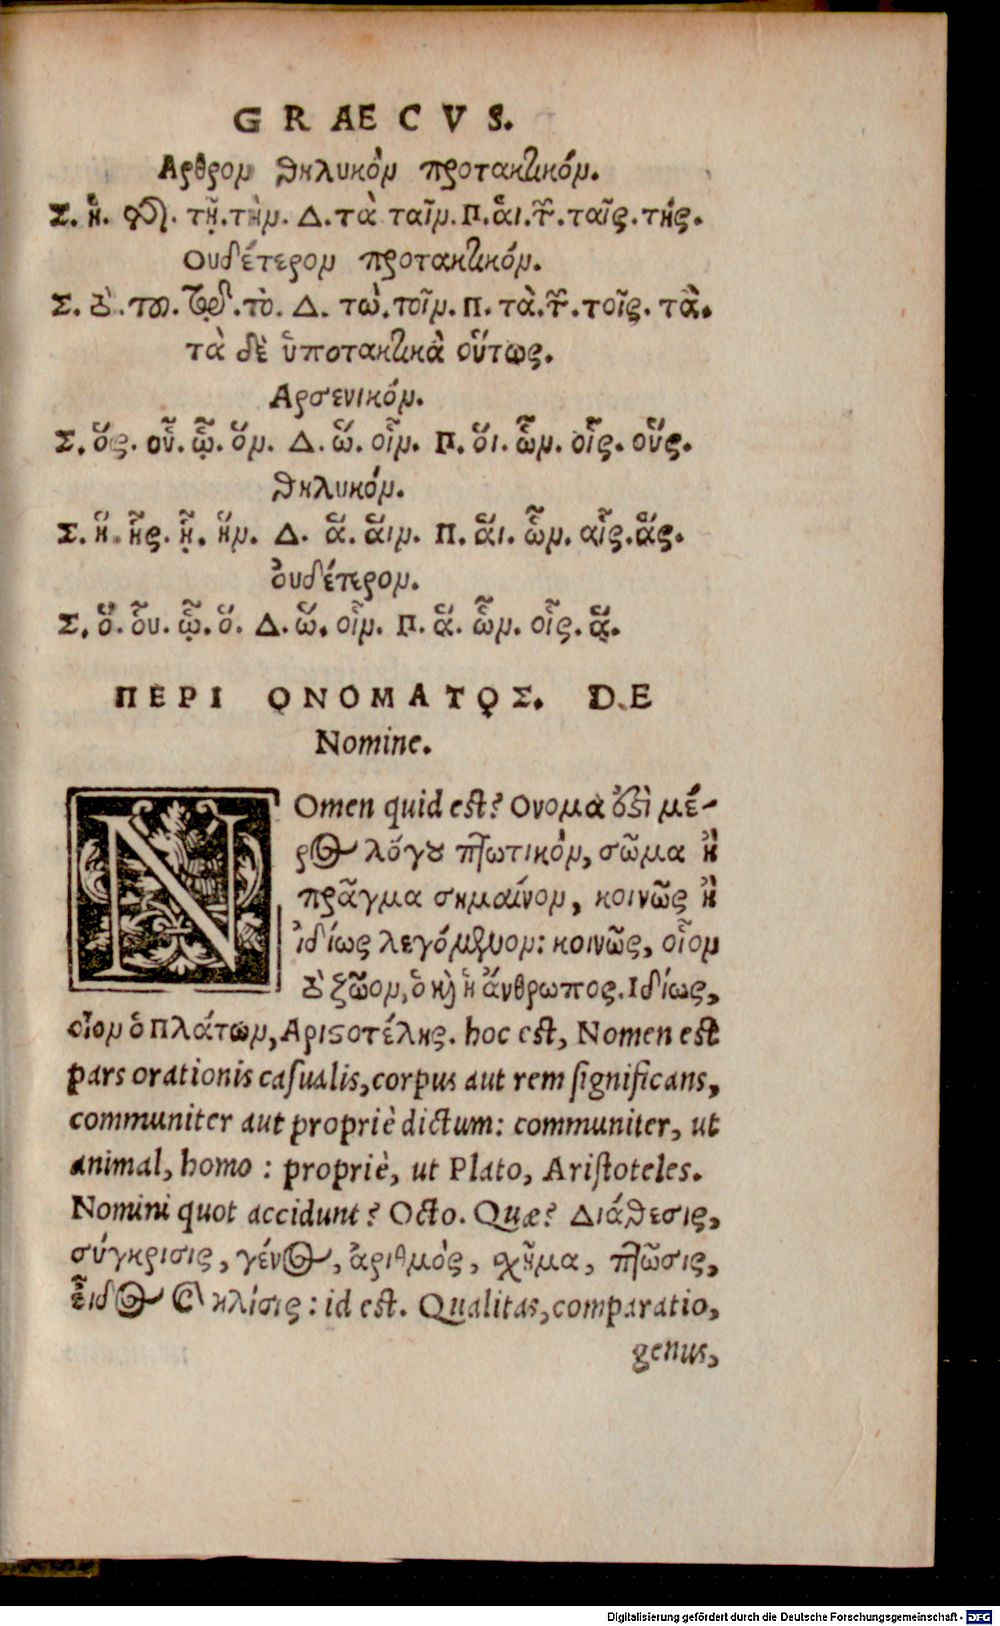 GRAECVS.
Αρθρον θηλυκὸν προτακτικόν.
Σ. ἡ. τῆς. τῇ. τὴν. Δ. τὰ ταῖν. Π. ἁι. τῶν. ταῖς. τής.
Ουδέτερον προτακτικόν.
Σ. τὸ. του. τῷ. τὸ. Δ. τὼ. τοῖν. Π. τὰ. τῶν. τοῖς. τὰ.
τὰ δὲ ὑποτακτικὰ οὕτως.
Αρσενικόν.
Σ. ὅς. οὗ. ᾧ. ὅν. Δ. ὥ. οἷν. Π. ὅι. ὧν. οἷς. οὕς.
θηλυκόν.
Σ. ἥ. ἧς. ᾗ. ἥν. Δ. ἅ. ἅιν. Π. ἅι. ὧν. αἷς. ἅς.
ὀυδέτερον.
Σ. ὅ. ὗου. ᾧ. ὅ. Δ. ὥ. οἷν. Π. ἅ. ὧν. οἷς. ἅ.
ΠΕΡΙ ΟΝΟΜΑΤΟΣ. DE
Nomine.
NOmen quid est? Ονομα ὀστὶ μέ-
ρος λόγου πτωτικὸν, σῶμα ἢ
πρᾶγμα σημαίνον, κοινῶς ἢ
ἰδίως λεγόμενον: κοινῶς, οἷον
τὸ ζῶον, ὁ καὶ ἡ ἄνθρωπος. Ιδίως,
οἷον ὁ Πλάτων, Αριστοτέλης. hoc est, Nomen est
pars orationis casualis, corpus aut rem significans,
communiter aut propriè dictum: communiter, ut
animal, homo : propriè, ut Plato, Aristoteles.
Nomini quot accidunt? Octo. Quæ? Διάθεσις,
σύγκρισις, γένος, ἀριθμὸς, σχῆμα, πτῶσις,
εἶδος καὶ κλίσις : id est. Qualitas, comparatio,
genus,
Digitalisierung gefördert durch die Deutsche Forschungsgemeinschaft - DFG